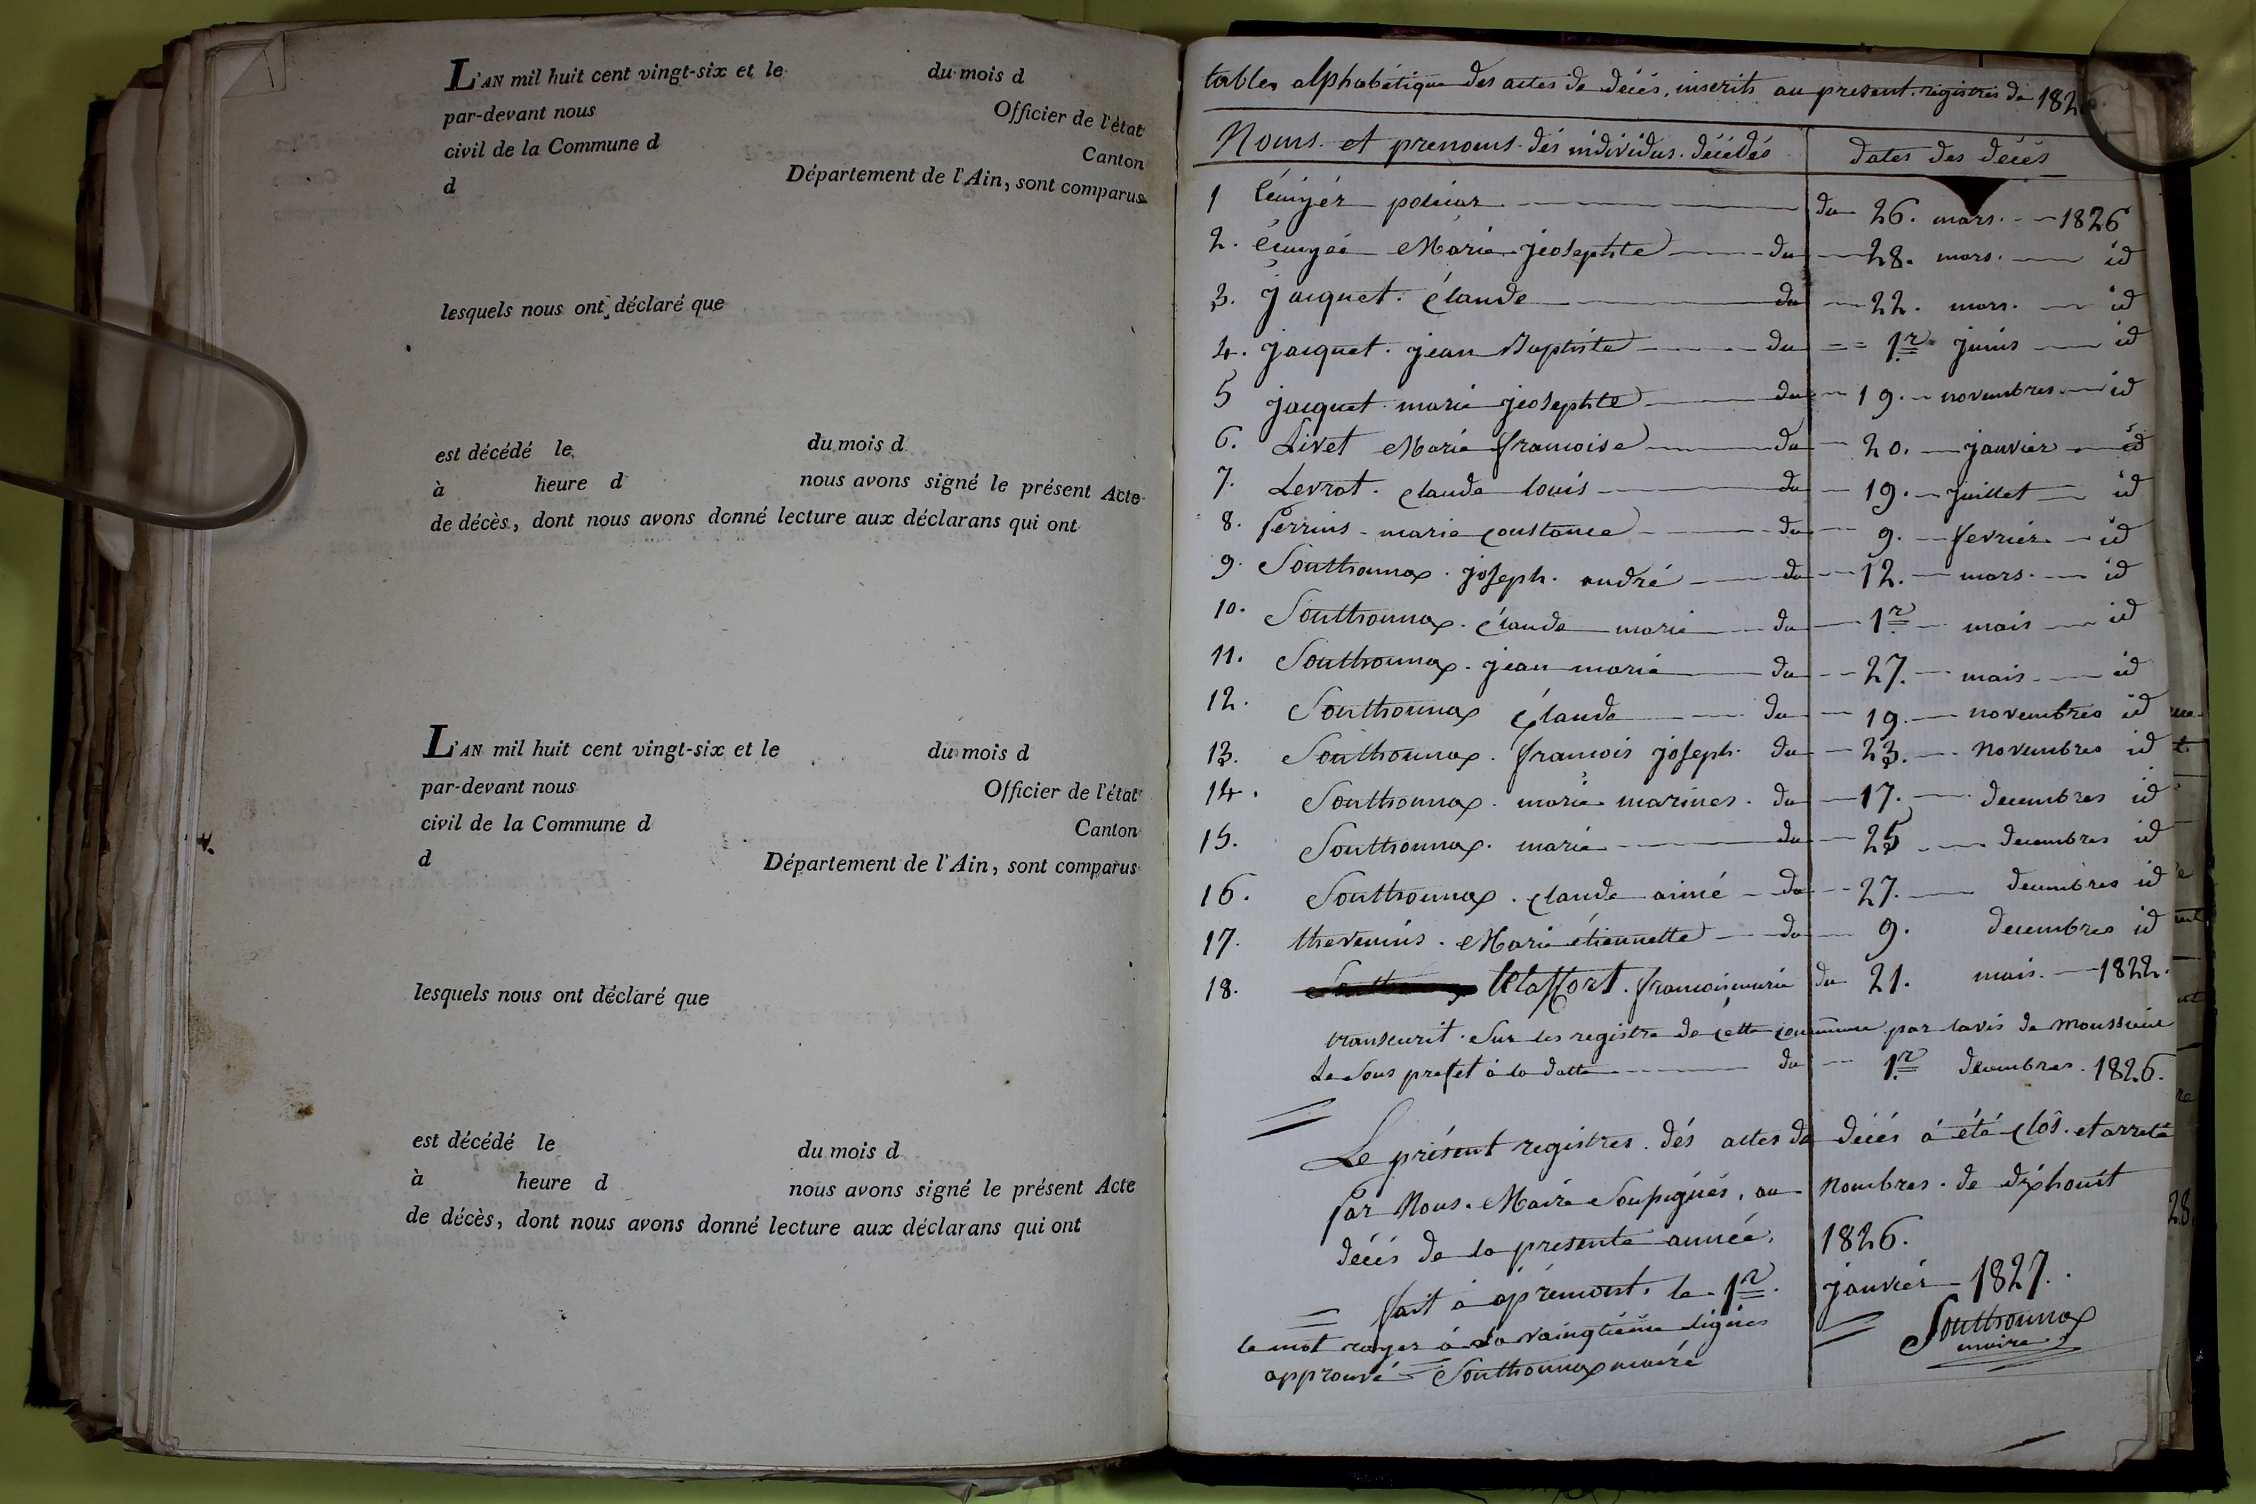 L'AN mil huit cent vingt-six et le du mois d
par-devant nous Officier de l'état
civil de la Commune d Canton
d Département de l'Ain, sont comparus
lesquels nous ont déclaré que
est décédé le du mois d
à heure d nous avons signé le présent Acte
de décès, dont nous avons donné lecture aux déclarans qui ont
L'AN mil huit cent vingt-six et le du mois d
par-devant nous Officier de l'état
civil de la Commune d Canton
d Département de l'Ain, sont comparus
lesquels nous ont déclaré que
est décédé le du mois d
à heure d nous avons signé le présent Acte
de décès, dont nous avons donné lecture aux déclarans qui ont
tables alphabétique des actes de décés, inscrits au present registres de 182
Noms et prenoms dés individus décédés dates des décés
1 du 26. mars. 1826
2. Marie josephte du 28. mars. id
3. jacquet. Claude du 22. mars. id
4. jacquet. jean Baptiste du 1.r juins id
5 jacquet marie josephte du 19. novembres id
6. Livet Marie francoise du 20. janvier id
7. Levrat. claude louis du 19. juillet id
8. Perrins marie constance du 9. fevrier id
9. Southonnax. joseph. andré du 12. mars. id
10. Southonnax. Claude marie du 1.r mais id
11. Southonnax. jean marie du 27. mais id
12. Southonnax Claude du 19. novembres id
13. Southonnax. francois joseph. du 23. novembres id
14. Southonnax. marie marines. du 17. decembres id
15. Southonnax. marie du 25 decembres id
16. Southonnax. claude aimé du 27. decembres id
17. thevenins. Marie étiennette du 9. decembres id
18. francoimarie du 21. mais. 1822.
transcurit. Sur les registre de cétte commune par lavis de moussieur
Le Sous prefet à la datte du 1.r decembres. 1826.
Le présent registres. dés actes de décés à été clôs. et arreté
par Nous. Maire Soussignés, au nombres. de dixhouit
décés de la presente année, 1826.
fait à apremont. le 1.r janviér 1827.
Southonnax
maire
le mot rayer à la vaingtieme lignes
approuvé Southonnax maire